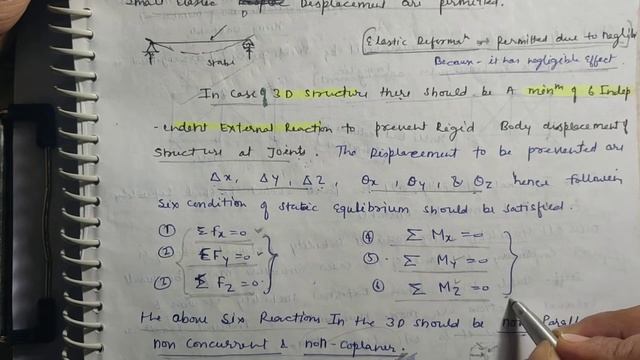 Small Elastic Displacement are permitted.
Stable
Elastic Deformat → Permitted due to neglig
Because - it has negligible effect
In case of 3D structure there should be A minm of 6 Indep
-endent External Reaction to prevent Rigid Body displacement of
structure at Joints. The Displacement to be prevented are
Δx, Δy, Δz, θx, θy, & θz hence followin
Six condition of static Equlibrium should be satisfied.
① Σ fx=0 ④ Σ Mx=0
② ΣFy=0 ⑤ Σ My=0
③ Σ Fz=0 ⑥ Σ Mz=0
the above Six Reactions In the 3D should be non Parall
non concurrent & non-coplaner.